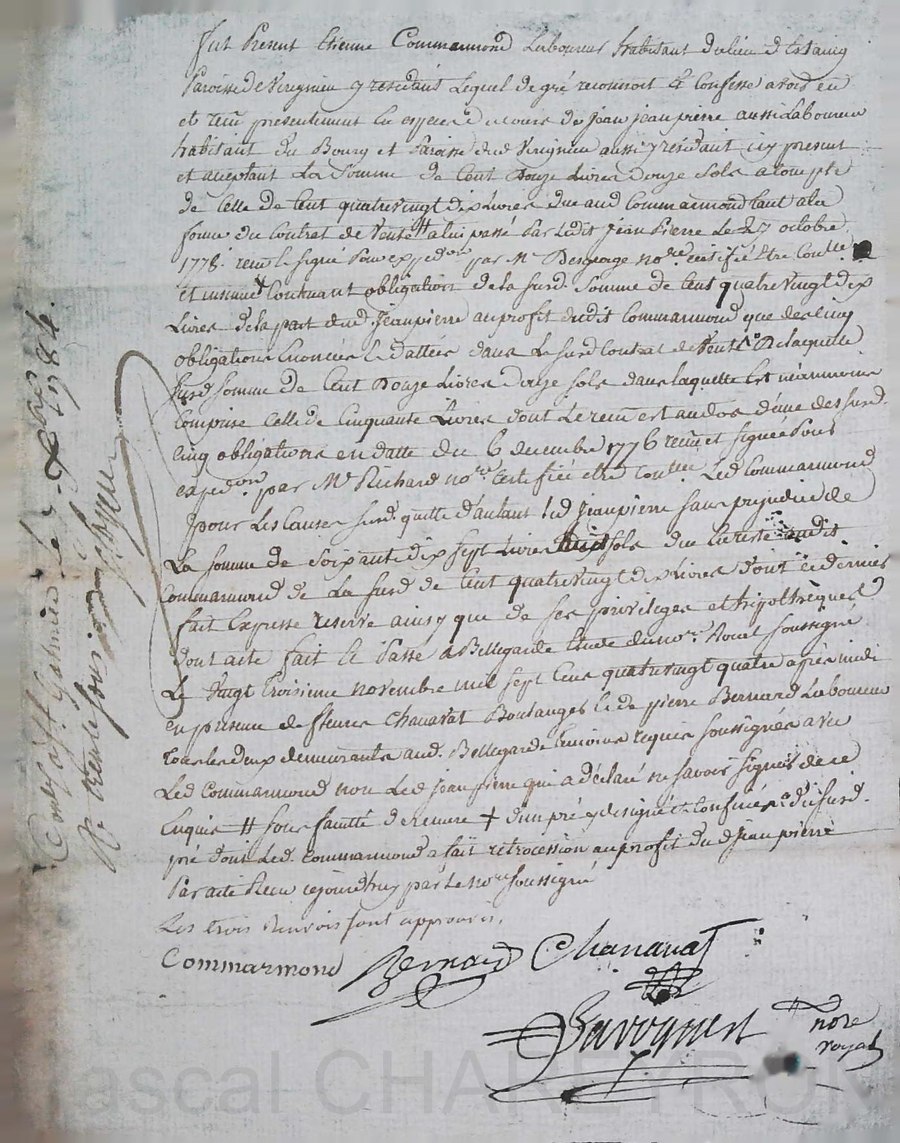 fut Present Etienne Commarmond Laboureur habitant du lieu d'Essaing
Paroisse de Verignieu y residant Lequel de gré reconnoit Et Confesse avoir eu
et recu presentement en especes de cours de jean jeanpierre aussi Laboureur
habitant du Bourg et Paroisse dud Verignieu aussi y residant icy present
et acceptant La Somme de Cent Douze Livres Douze Sols acompte
de Celle de Cent quatrevingt dix Livres due aud Commarmond tant a la
forme du Contrat de Vente # a lui passé Par Ledit jeanpierre Le 27 octobre
1778. recu Et signé Pour expedon par Me Desgorge nore certifié Etre Controllé
et insinué Contenant obligation de la Surd. Somme de Cent quatrevingt dix
Livres de la part dud. Jeanpierre au profit dudit Commarmond que des cinq
obligations Enoncées Et dattées dans Le Surd Contrat de Vente De laquelle
Surd Somme de Cent Douze Livres douze sols dans laquelle Est neanmoins
Comprise Celle de Cinquante Livres dont Le recu est au dos d'une des surd.
cinq obligations en datte du 6 decembre 1776 recue et signée Pour
expedon. par Me Richard nore Certifiée etre Controllée Led Commarmond
pour Les Causes Surd quitte d'autant led jeanpierre sans prejudice de
La Somme de Soixante dix sept Livres huit sols due de reste audit
Commarmond de La Surd de Cent quatrevingt dix Livres dont ce dernier
fait Expresse reserve ainsy que de ses privileges et hipotheques
dont acte fait Et Passé a Bellegarde Etude du nore. Royal Soussigné
Le Vingt Troisieme novembre mil sept Cens quatrevingt quatre après midi
en presence de Chanavat Boulanger Et de pierre Bernard Laboureur
tous les deux demeurants aud. Bellegarde temoins requis soussignés avec
Led Commarmond non Led jeanpierre qui a declaré ne savoir signer de ce
Enquis # sous faculté de remere + d'un pré y designé et Confiné du surd.
pré dont Led. Commarmond a fait retrocession au profit dud jeanpierre
Par acte Recu cejourd'huy par Le nore soussigné
Les trois Renvois sont approuvés.
Commarmond Bernard Chanavat
nore
royal
Conté à St. Galmier Le 1784.
R. Trente sols